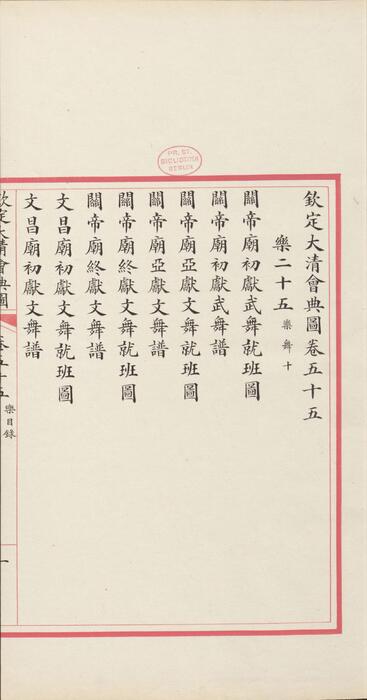 PR. ST.
BIBLIOTHEK
BERLIN
欽定大清會典圖卷五十五
樂二十五 樂舞十
關帝廟初獻武舞就班圖
關帝廟初獻武舞譜
關帝廟亞獻文舞就班圖
關帝廟亞獻文舞譜
關帝廟終獻文舞就班圖
關帝廟終獻文舞譜
文昌廟初獻文舞就班圖
文昌廟初獻文舞譜
欽定大清會典圖 卷五十五 樂目錄 一